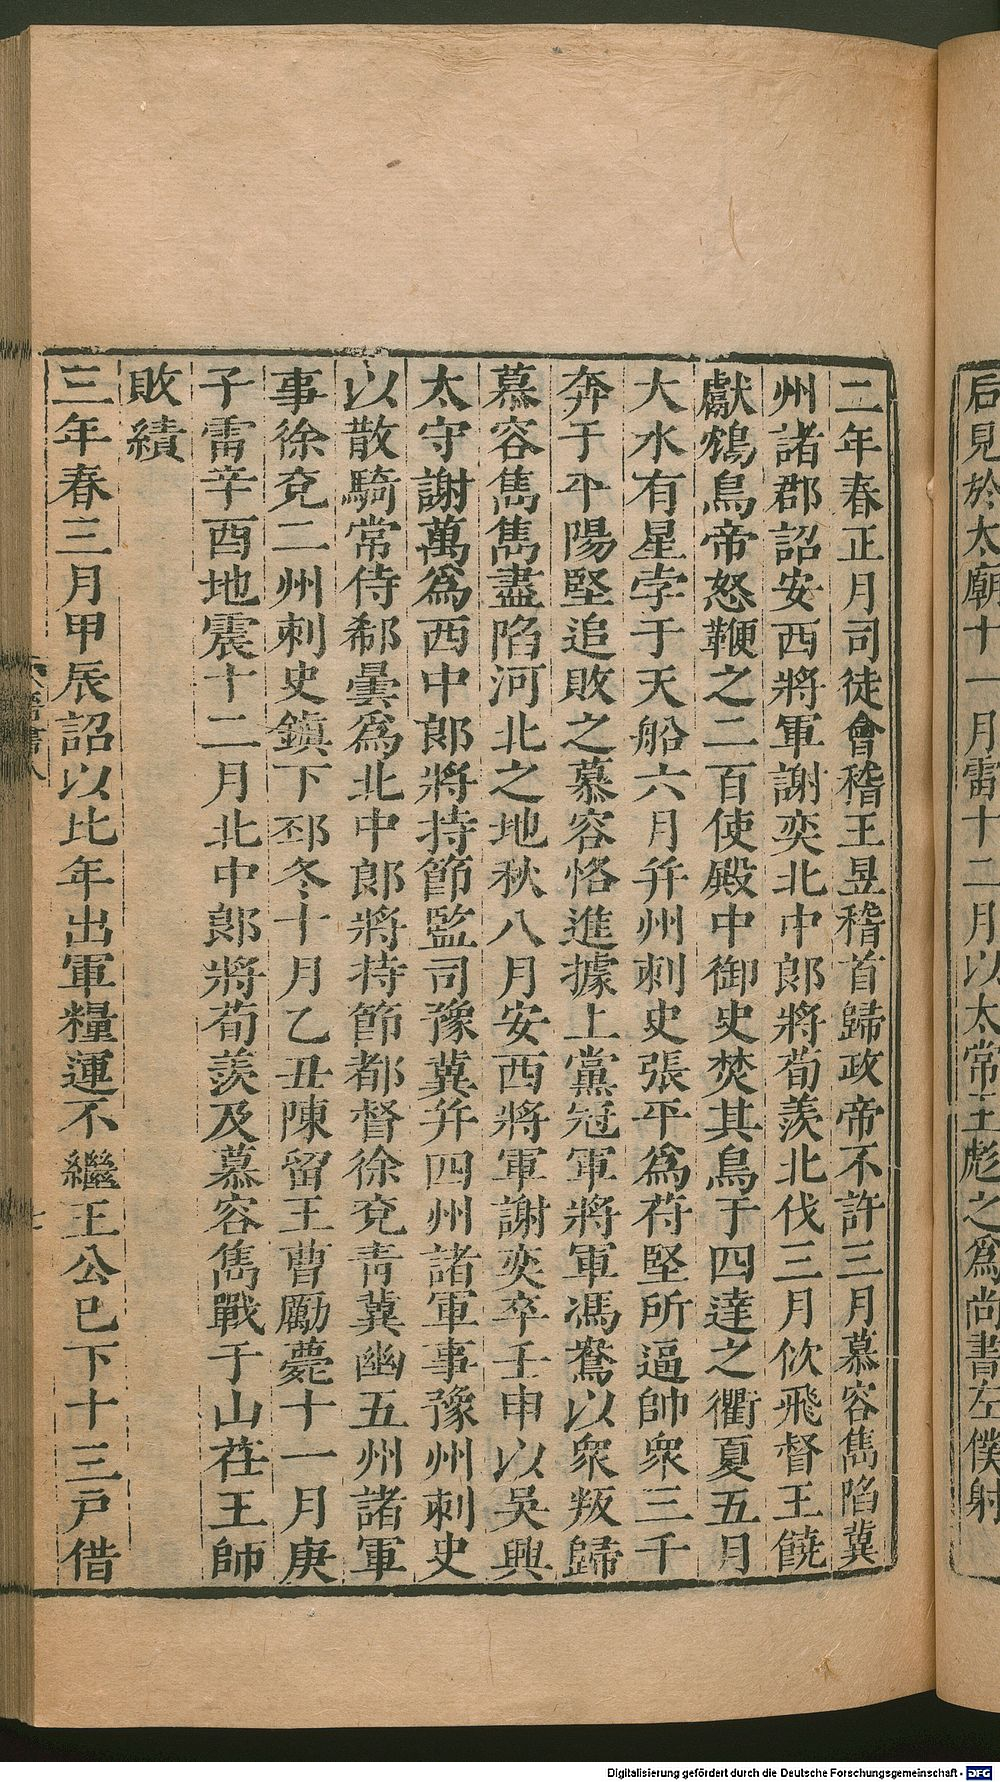 后見於太廟十一月雷十二月以太常王彪之爲尚書左僕射
二年春正月司徒會稽王昱稽首歸政帝不許三月慕容雋陷冀
州諸郡詔安西將軍謝奕北中郎將荀羨北伐三月佽飛督王饒
獻鴆鳥帝怒鞭之二百使殿中御史焚其鳥于四達之衢夏五月
大水有星孛于天船六月幷州刺史張平爲苻堅所逼帥衆三千
奔于平陽堅追敗之慕容恪進據上黨冠軍將軍馮鴦以衆叛歸
慕容雋雋盡陷河北之地秋八月安西將軍謝奕卒壬申以吳興
太守謝萬爲西中郎將持節監司豫冀幷四州諸軍事豫州刺史
以散騎常侍郗曇爲北中郎將持節都督徐兗靑冀幽五州諸軍
事徐兗二州刺史鎭下邳冬十月乙丑陳留王曹勵薨十一月庚
子雷辛酉地震十二月北中郎將荀羨及慕容雋戰于山茌王師
敗績
三年春三月甲辰詔以比年出軍糧運不繼王公已下十三戸借
七
Digitalisierung gefördert durch die Deutsche Forschungsgemeinschaft - DFG